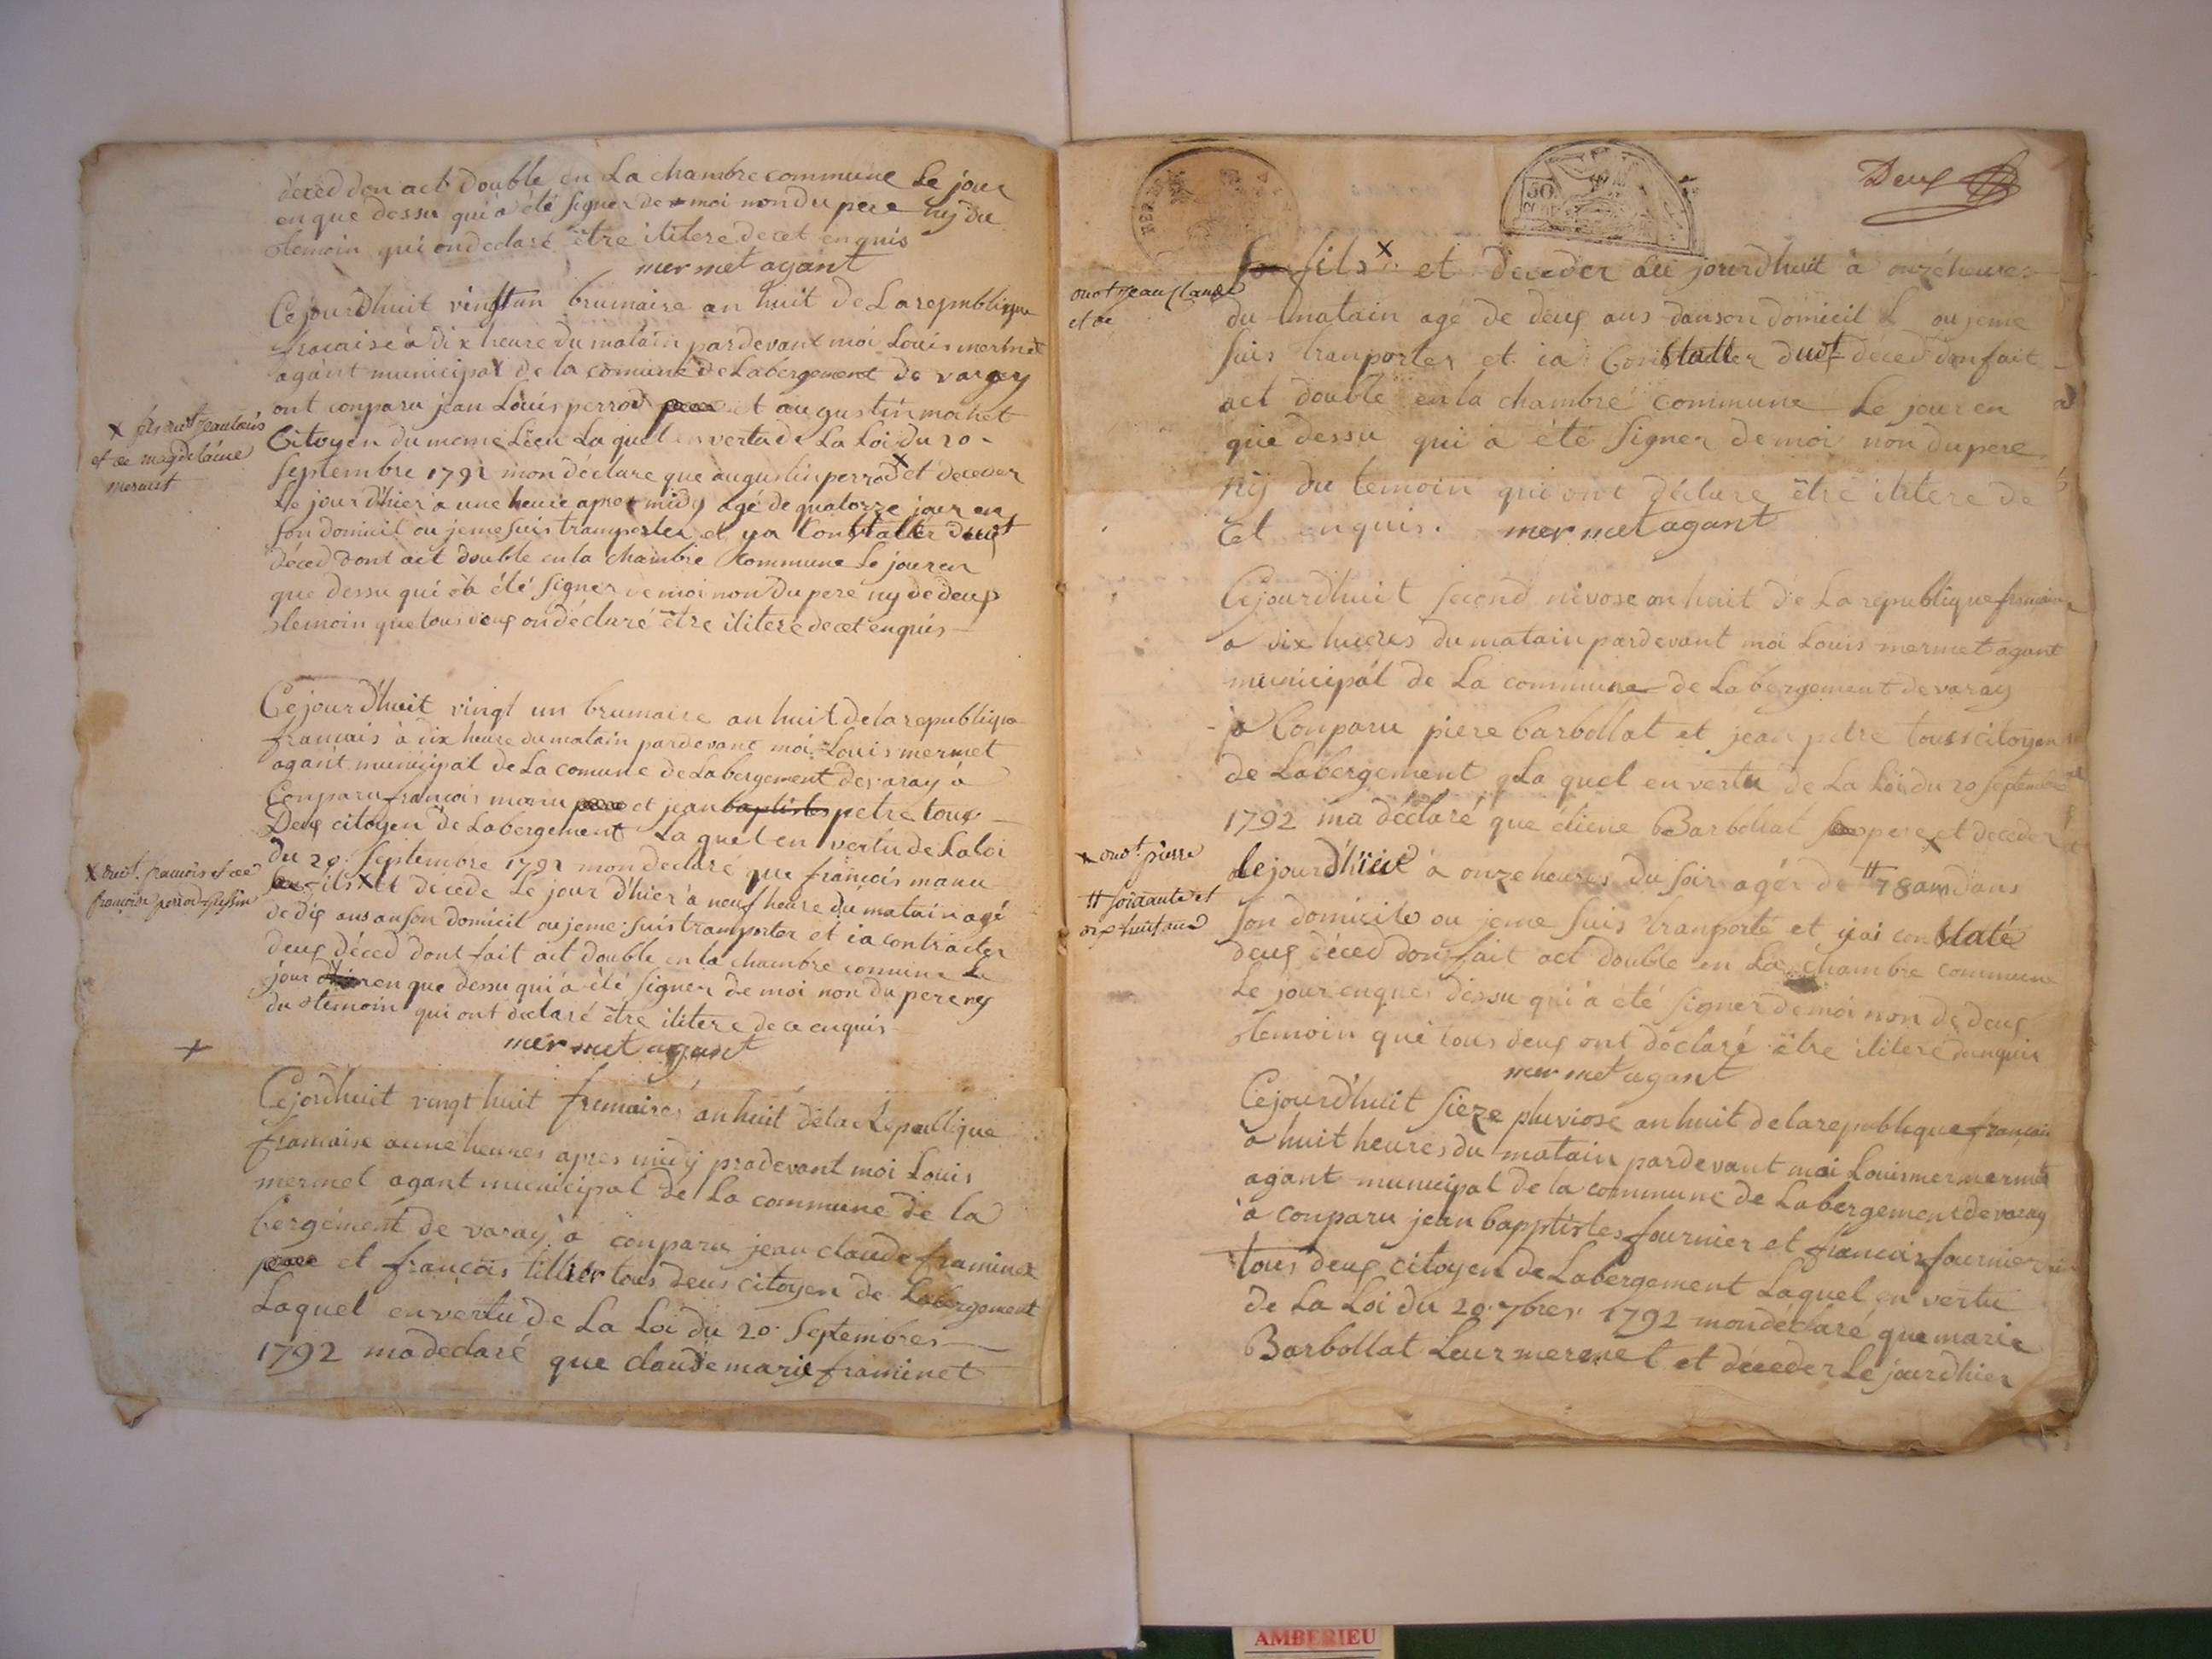 déced don act double en la chambre commune le jour
en que dessu qui a été signer de moi non du pere ny du
temoin qui on declaré être ilitere de cet enquis
mermet agant
Cejourdhuit vingt un brumaise an huit de la republique
fracaise à dix heure du matain pardevant moi Louis mermet
agant municipal de la comune de Labergement de varay
ont conparu jean Louis perrod pere et augustin mochet
Citoyen du meme Lieu La quel en vertu de La Loi du 20
septembre 1792 mon déclare que augustin perrod x et deceder
Le jour d'hier a une heure apres midy agé de quatorze jour en
son domicil ou jeme suis tramporter et ya Constatter dudt
déced dont act double en la chambre commune Le jour en
que dessu qui a été signer de moi non du pere ny de deux
temoin que tous deux on déclaré être ilitere de cet enquis
x fils dudt jean louis
et de magdelaine
mermet
Cejourd'huit vingt un brumaire an huit de la republique
francais à dix heure du matain pardevant moi Louis mermet
agant municipal de La comune de Labergement de varay à
Conparu francois manu pere et jean baptistes petre tous
Deux citoyen de Labergement La quel en vertu de La loi
du 20 septembre 1792 mon declaré que francois manu
son fils x et décede Le jour d'hier à neuf heure du matain agé
de dix ans an son domicil ou jeme suis tramporter et ia contracter
deux déced dont fait act double en la chambre comune Le
jour d'hier en que dessu qui à été signer de moi non du pere ny
du temoin qui ont declaré être ilitere de ce enquis
mermet agant
x dudt francois et de
françoise perrod
+
Cejordhuit vingt huit frimaires an huit de la republique
francaise aune heures apres midy pradevant moi Louis
mermet agant municipal de La commune de la
bergement de varay à conparu jean claude framinet
pere et françois tillier tous deus citoyen de Labergement
Laquel en vertu de La Loi du 20 Septembres
1792 ma declaré que claude marie framinet
Deux
50
son fils x et deceder cee jourdhuit à onze heures
du matain age de deux ans dans son domicil ou jeme
suis tranporter et ia Constatter dudt déced don fait
act double en la chambre commune Le jour en
que dessu qui a été signer de moi non du pere
ny du temoin qui ont déclare être ilitere de
cet enquis. mermet agant
dudt jean Claude
et de
Cejourdhuit second nivose an huit de La republique francaise
a dix heures du matain pardevant moi Louis mermet agant
municipal de La commune de Labergement de varay
à Conparu piere barbollat et jean petre tous citoyen
de Labergement La quel en vertu de La Loi du 20 septembre
1792 ma déclaré que étiene Barbollat son pere x et deceder
Le jourd'hier à onze heures du soir agér de tt 78 ans dans
son domicile ou jeme suis tranporté et y ai constaté
deux déced don fait act double en La chambre commune
Le jour en que dessu qui à été signer de moi non de deux
temoin que tous deux ont déclaré être ilitere d'anquis
mermet agant
x dudt pierre
tt soixante et
dix huit ans
Cejourd'huit sieze pluviose an huit de la republique francais
à huit heures du matain pardevant moi Louis mermermet
agant municipal de la commune de Labergement de varay
à conparu jean bapptistes fournier et francois fournier
tous deux citoyen de Labergement Laquel en vertu
de La Loi du 20 7bres 1792 mon déclaré que marie
Barbollat Leur mere et déceder Le jourdhier
AMBERIEU